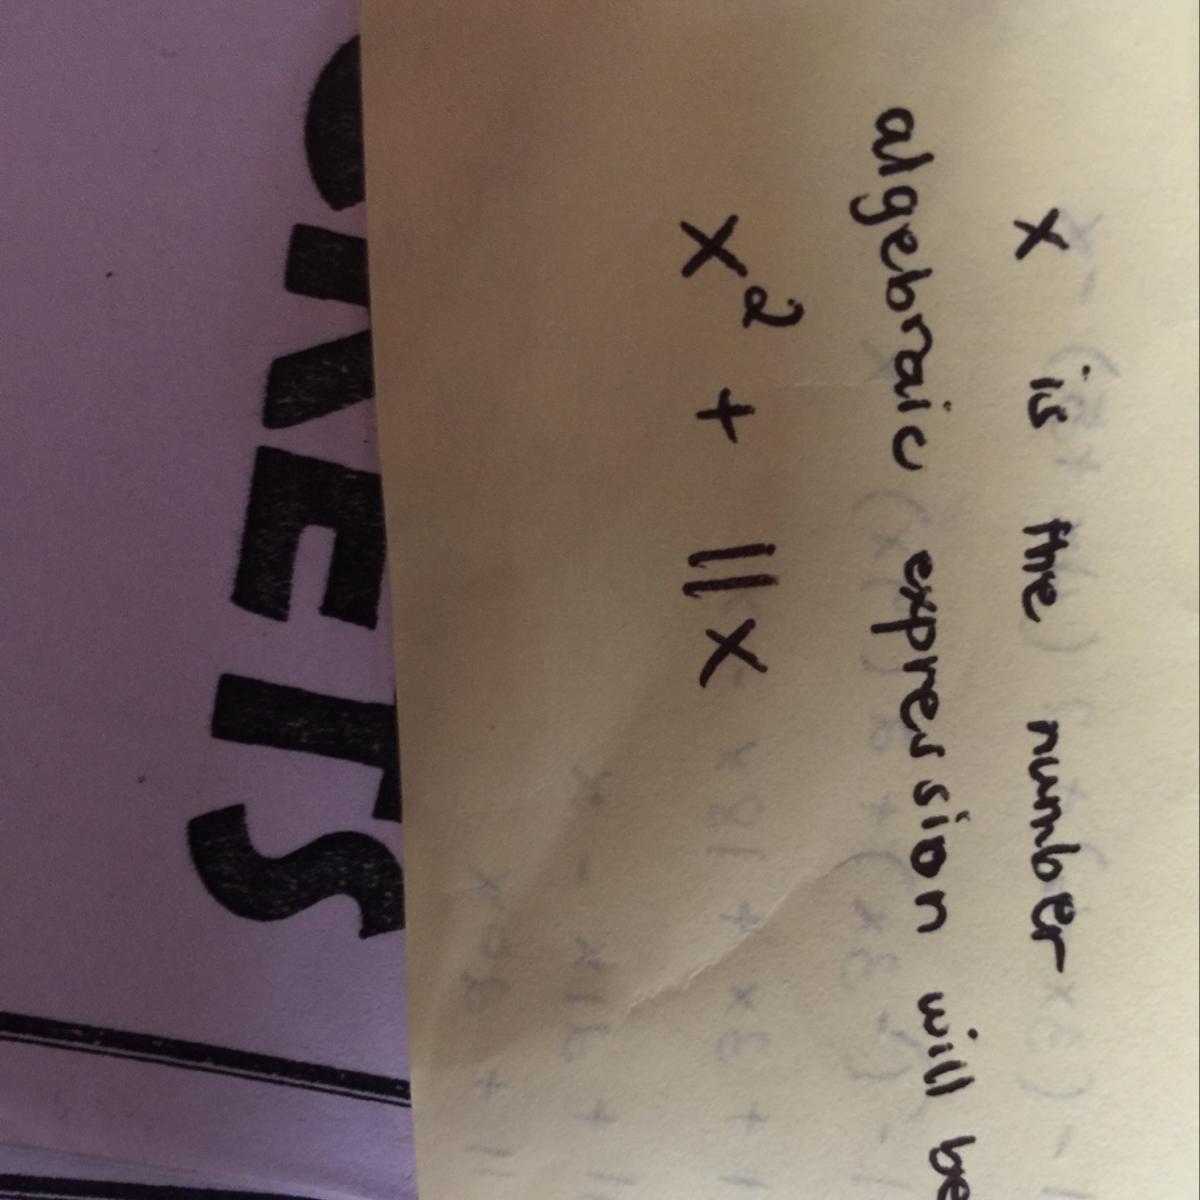 x is the number
algebraic expression will be
x² + 11x
KETS